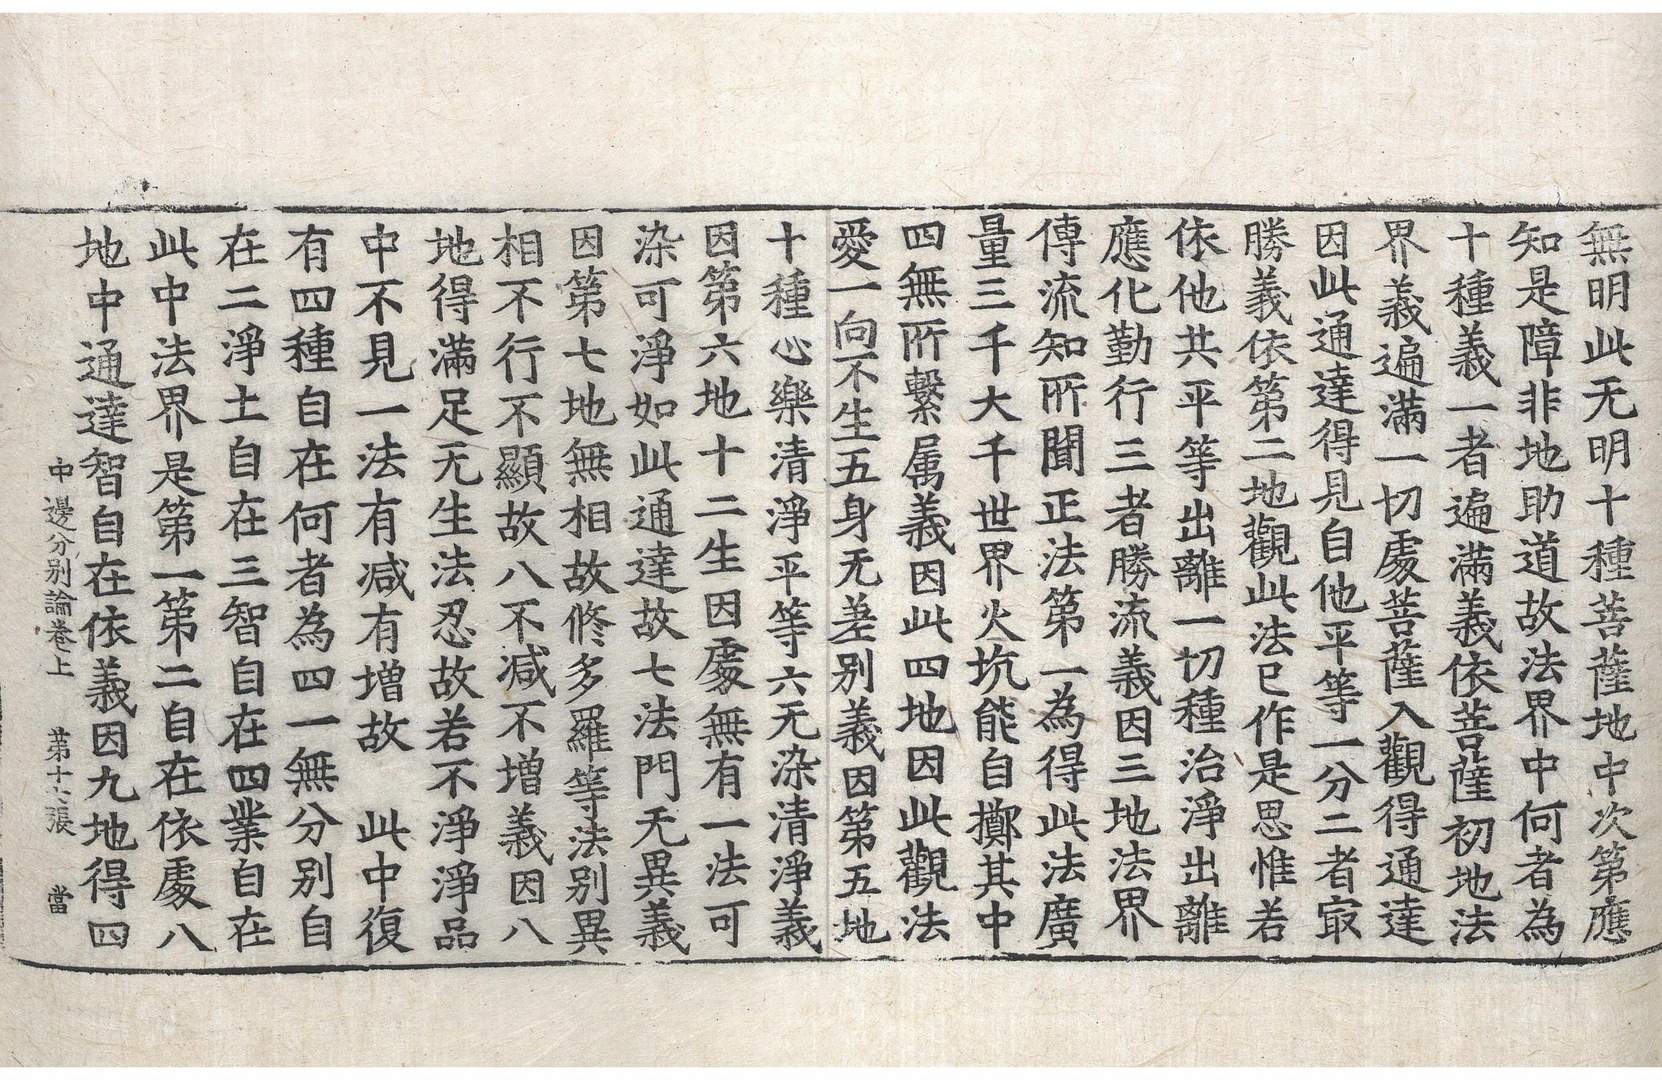 無明此无明十種菩薩地中次第應
知是障非地助道故法界中何者為
十種義一者遍滿義依菩薩初地法
界義遍滿一切處菩薩入觀得通達
因此通達得見自他平等一分二者㝡
勝義依第二地觀此法已作是思惟若
依他共平等出離一切種治淨出離
應化勤行三者勝流義因三地法界
傳流知所聞正法第一為得此法廣
量三千大千世界火坑能自擲其中
四無所繫属義因此四地因此觀法
愛一向不生五身无差别義因第五地
十種心樂清淨平等六无染清淨義
因第六地十二生因處無有一法可
染可淨如此通達故七法門无異義
因第七地無相故修多羅等法别異
相不行不顯故八不减不增義因八
地得滿足无生法忍故若不淨淨品
中不見一法有减有增故　此中復
有四種自在何者為四一無分别自
在二淨土自在三智自在四業自在
此中法界是第一第二自在依處八
地中通達智自在依義因九地得四
中邊分别論卷上　第十六張　當